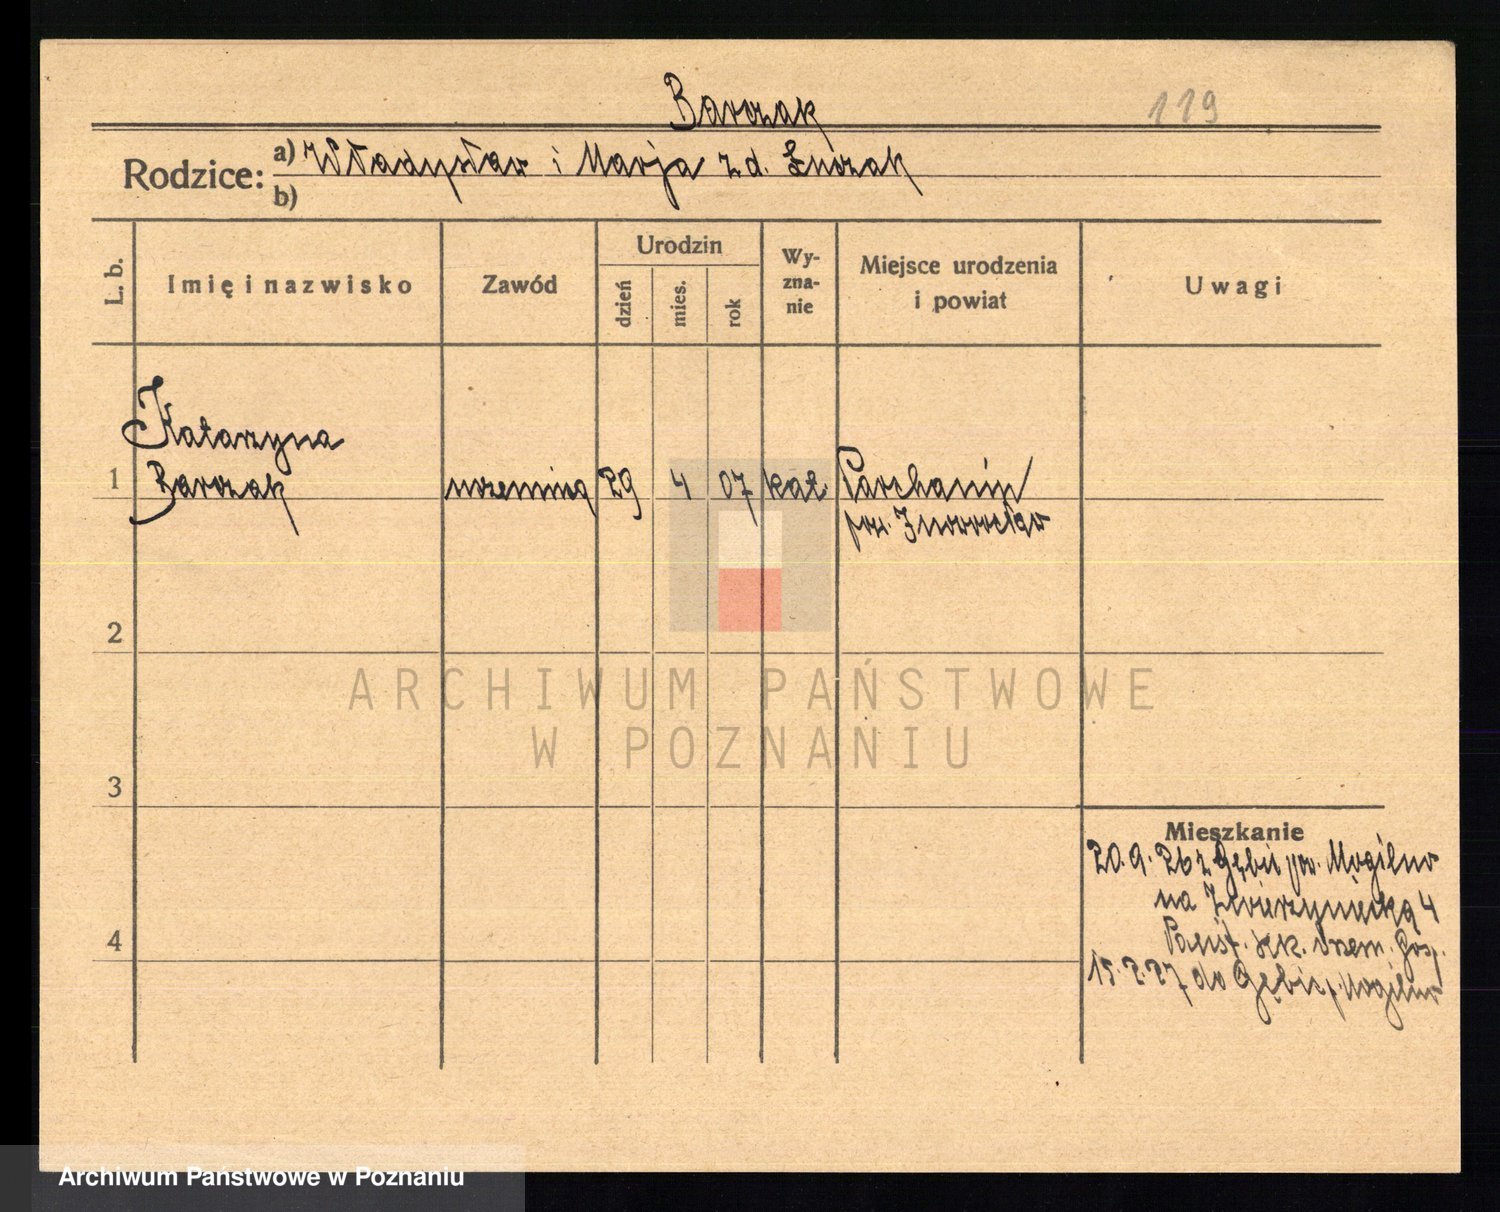 Barczak
119
Rodzice: a) Władysław i Marja z d.
b)
L. b.
Imię i nazwisko
Zawód
Urodzin
dzień
mies.
rok
Wy-
zna-
nie
Miejsce urodzenia
i powiat
Uwagi
Katarzyna
1 Barczak uczennica 29 4 07 kat Parchanie
pow. Inowrocław
2
3
4
Mieszkanie
20.9.26 z Gębic pow. Mogilno
na Zwierzyniecką 4
Państ. Gosp.
15.2.27 do Gębic p. Mogilno
ARCHIWUM PAŃSTWOWE
W POZNANIU
Archiwum Państwowe w Poznaniu